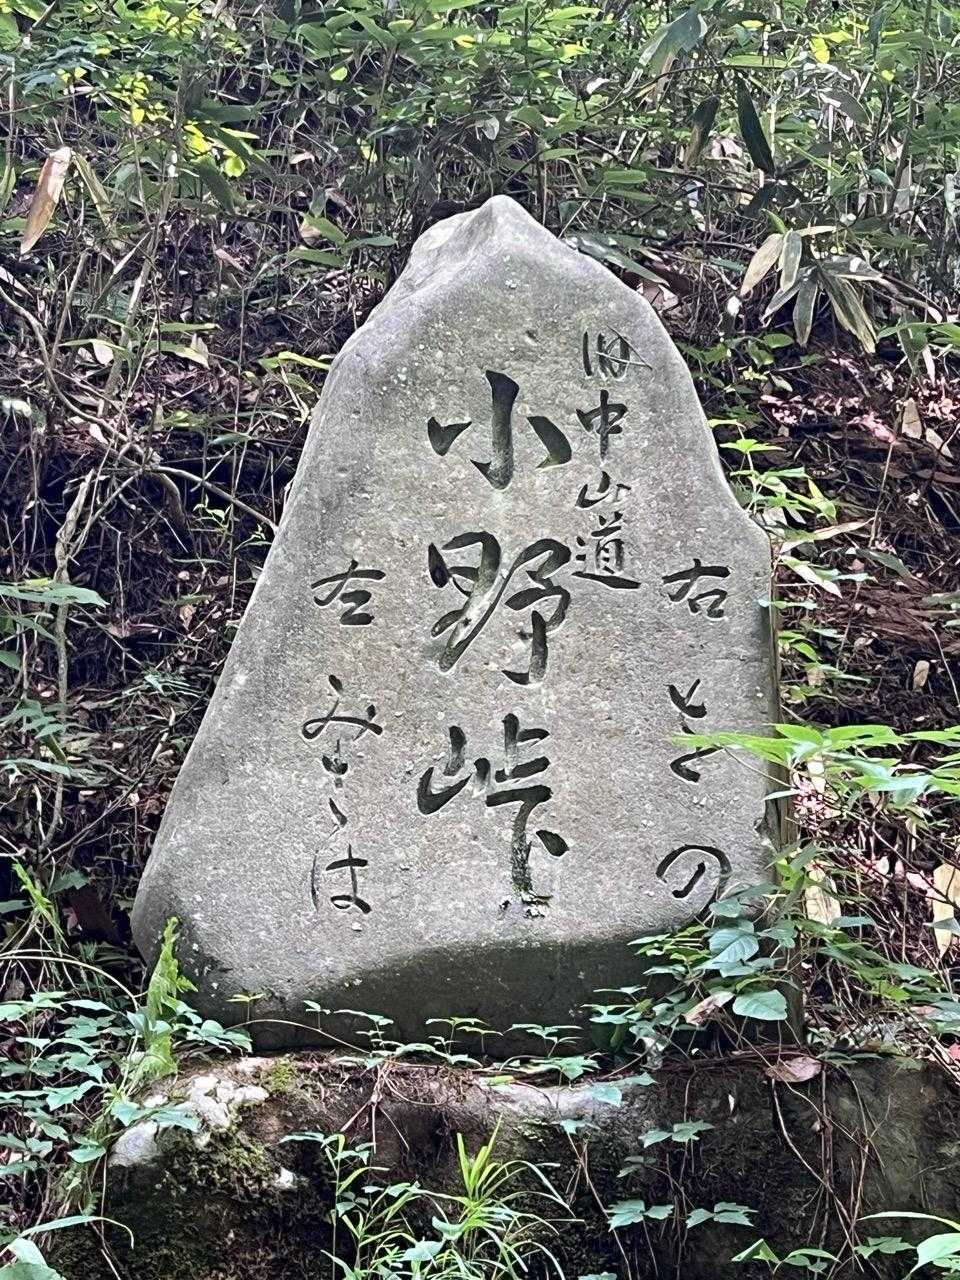 旧中山道
小野峠
右 をの
左 みさは